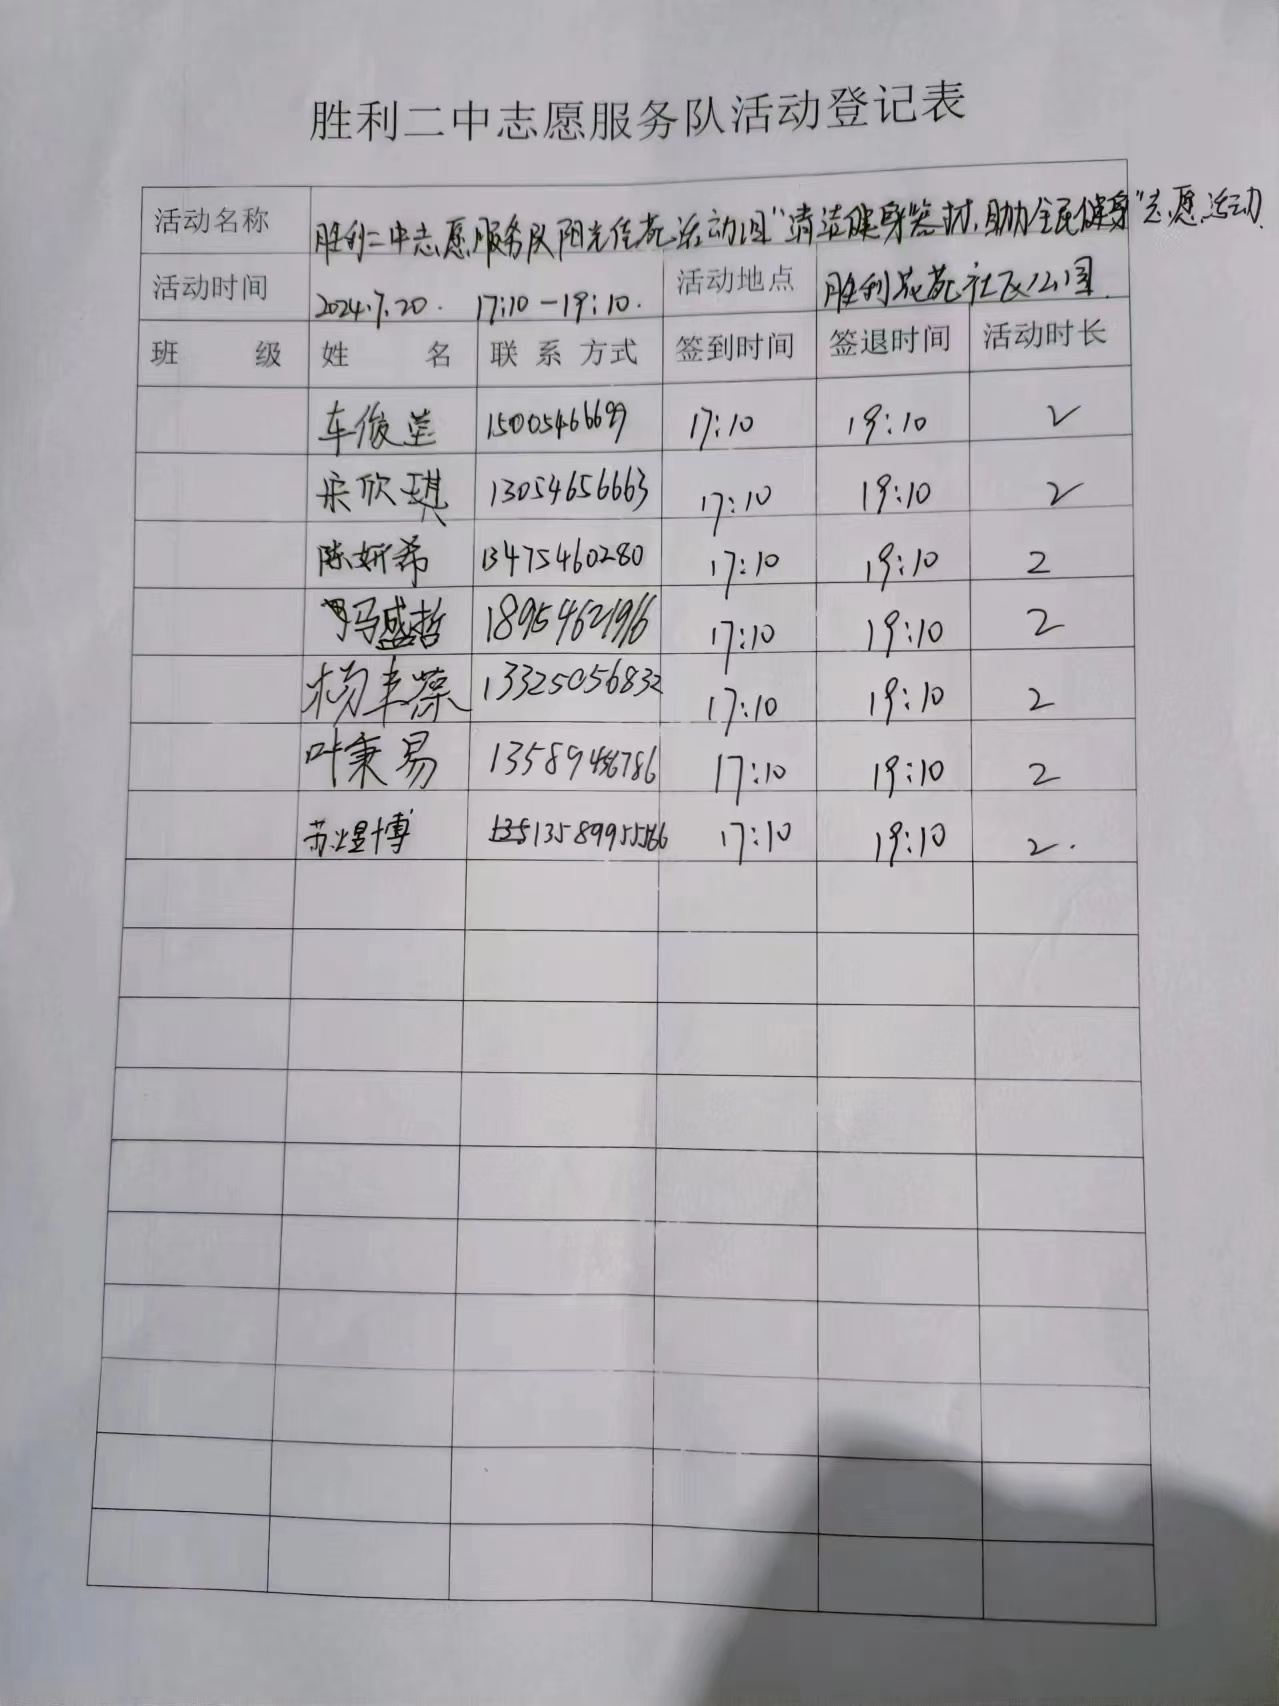 胜利二中志愿服务队活动登记表
活动名称 胜利二中志愿服务队阳光佳苑活动组"清洁健身器材,助力全民健身"志愿活动.
活动时间 2024.7.20. 17:10-19:10. 活动地点 胜利花苑社区公园
班 级 姓 名 联系方式 签到时间 签退时间 活动时长
车俊莹 15005466699 17:10 19:10 2
宋欣琪 13054656663 17:10 19:10 2
陈妍希 13475460280 17:10 19:10 2
马盛哲 18954621916 17:10 19:10 2
杨丰藻 13325056832 17:10 19:10 2
叶秉易 13589456786 17:10 19:10 2
苏煜博 17:10 19:10 2.